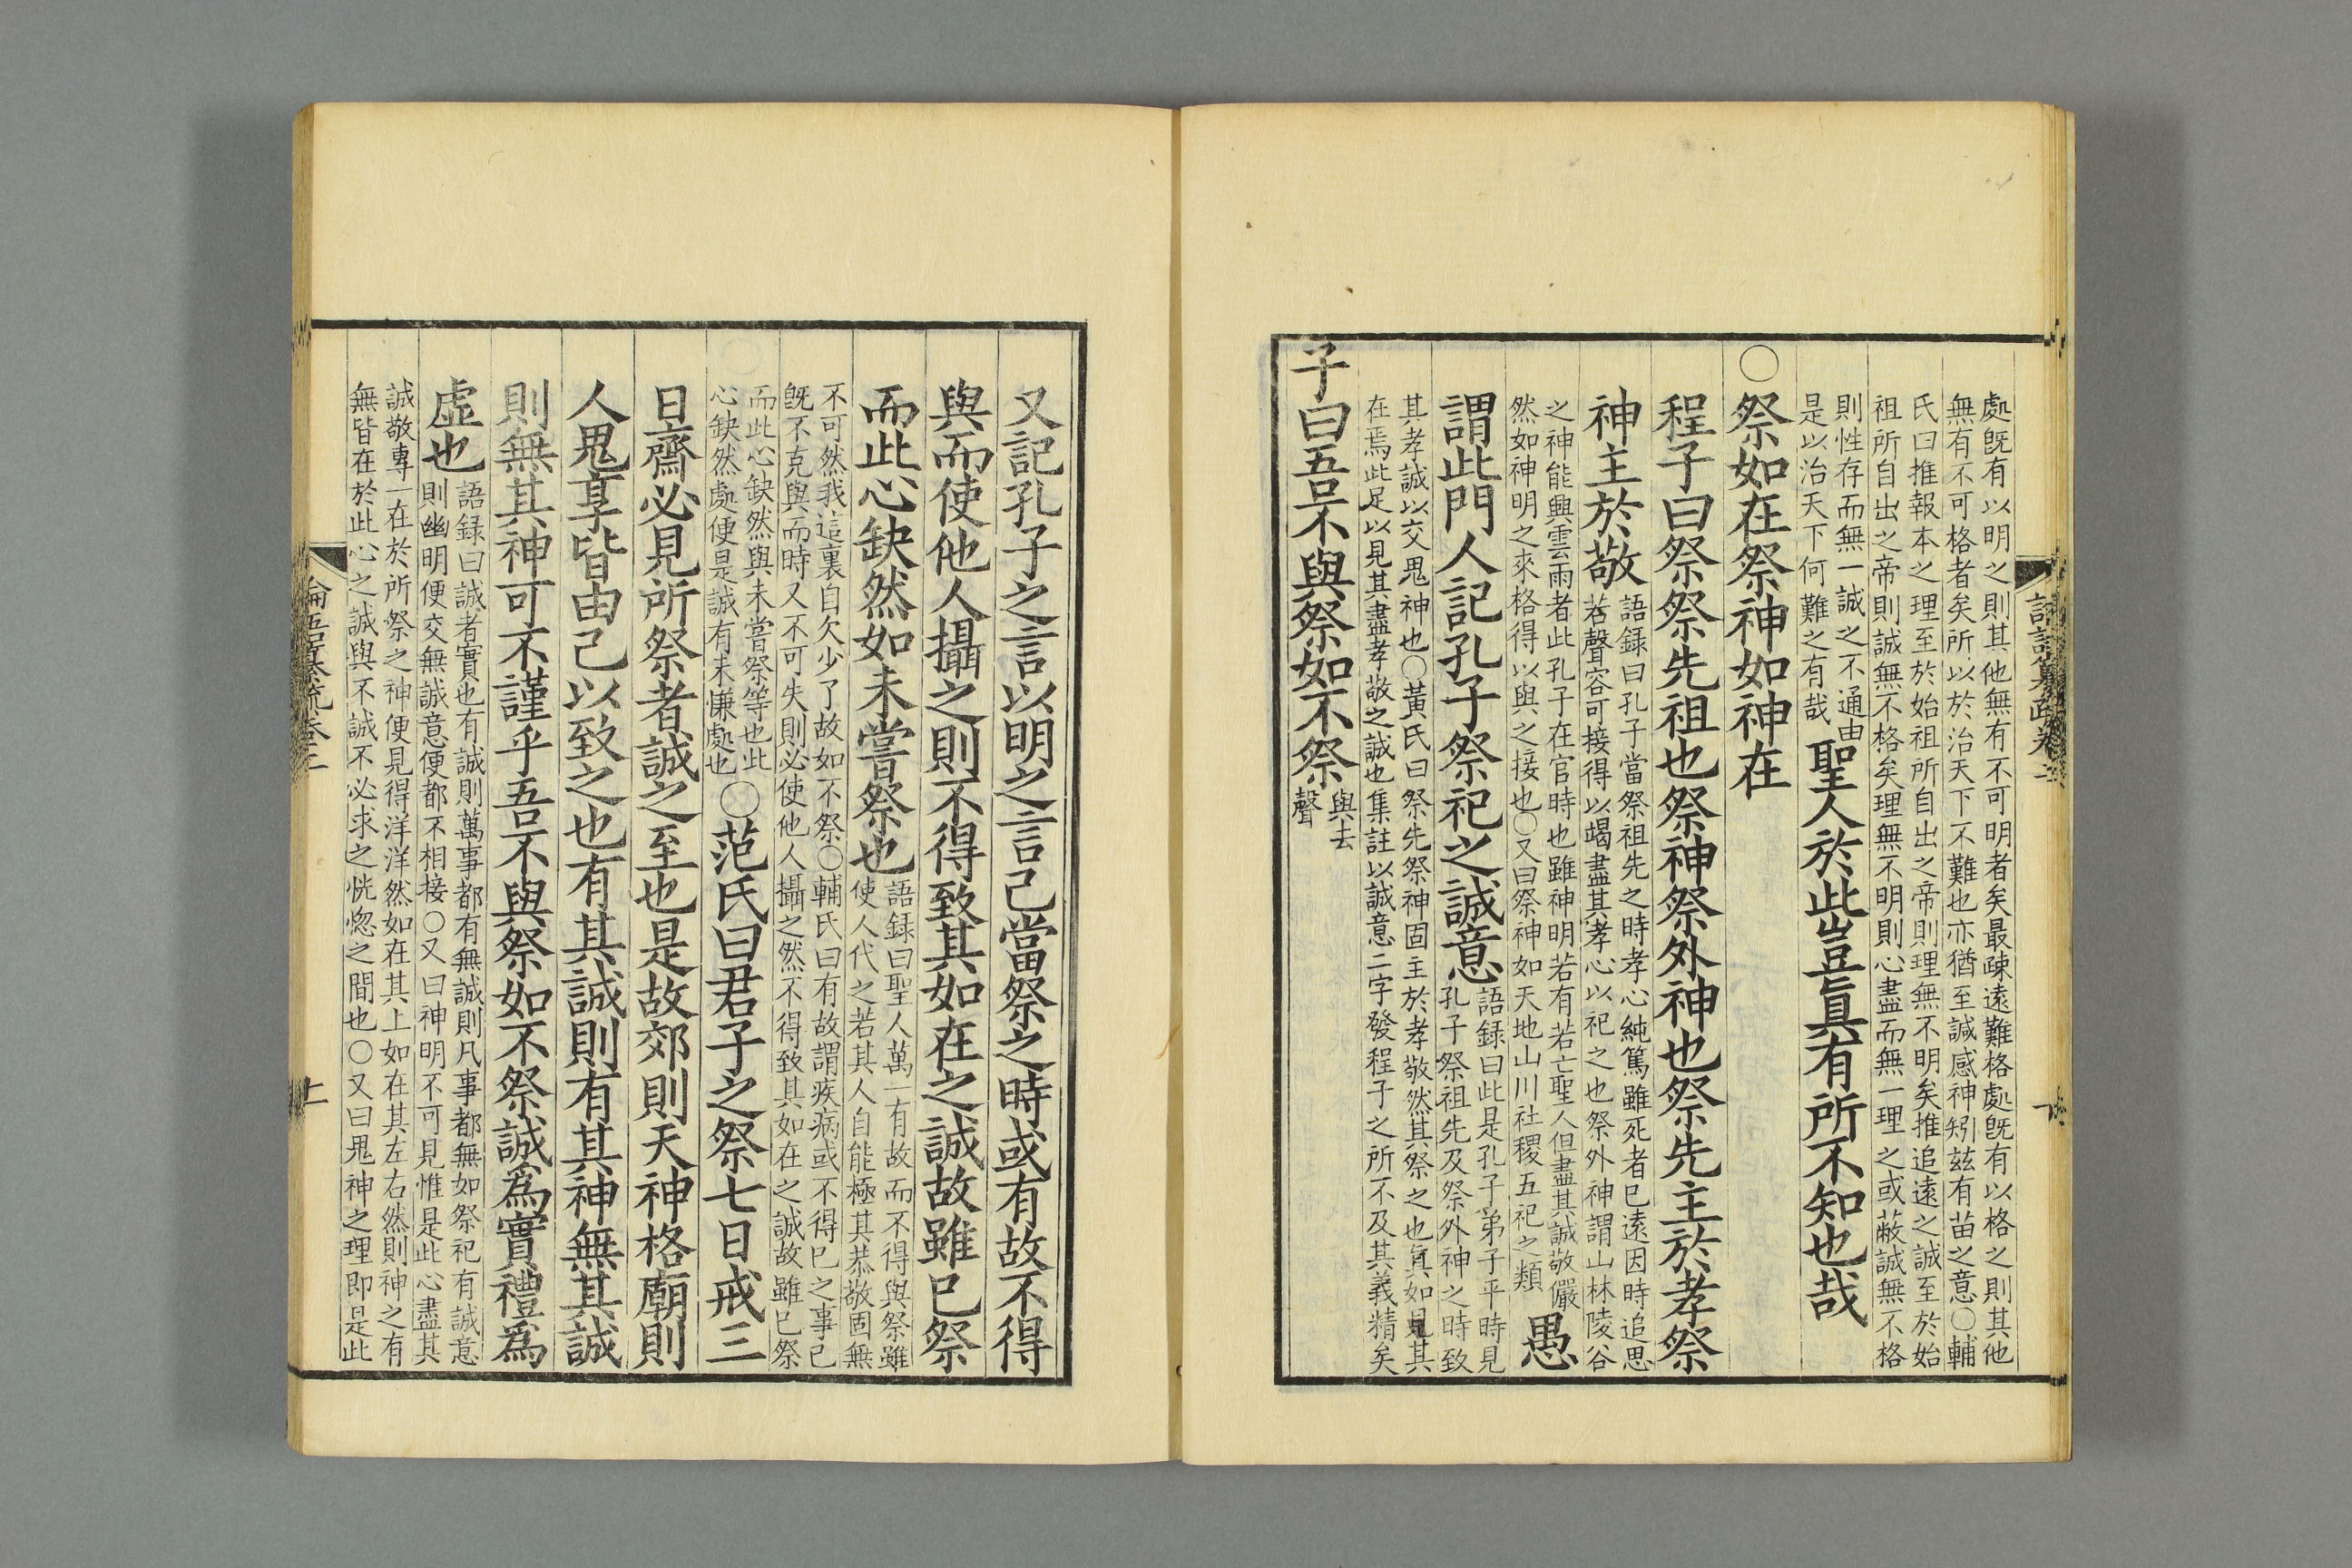 處旣有以明之則其他無有不可明者矣最疎遠難格處旣有以格之則其他
無有不可格者矣所以於治天下不難也亦猶至諴感神矧兹有苗之意○輔
氏曰推報本之理至於始祖所自出之帝則理無不明矣推追遠之誠至於始
祖所自出之帝則誠無不格矣理無不明則心盡而無一理之或蔽誠無不格
則性存而無一誠之不通由
是以治天下何難之有哉
聖人於此豈眞有所不知也哉
○祭如在祭神如神在
程子曰祭祭先祖也祭神祭外神也祭先主於孝祭
神主於敬
語録曰孔子當祭祖先之時孝心純篤雖死者已遠因時追思
若聲容可接得以竭盡其孝心以祀之也祭外神謂山林陵谷
之神能興雲雨者此孔子在官時也雖神明若有若亡聖人但盡其誠敬儼
然如神明之來格得以與之接也○又曰祭神如天地山川社稷五祀之類
愚
謂此門人記孔子祭祀之誠意
語録曰此是孔子弟子平時見
孔子祭祖先及祭外神之時致
其孝誠以交鬼神也○黃氏曰祭先祭神固主於孝敬然其祭之也眞如見其
在焉此足以見其盡孝敬之誠也集註以誠意二字發程子之所不及其義精矣
子曰吾不與祭如不祭
與去
聲
又記孔子之言以明之言己當祭之時或有故不得
與而使他人攝之則不得致其如在之誠故雖已祭
而此心缺然如未嘗祭也
語録曰聖人萬一有故而不得與祭雖
使人代之若其人自能極其恭敬固無
不可然我這裏自欠少了故如不祭○輔氏曰有故謂疾病或不得已之事已
旣不克與而時又不可失則必使他人攝之然不得致其如在之誠故雖已祭
而此心缺然與未嘗祭等也此
心缺然處便是誠有未慊處也
○范氏曰君子之祭七日戒三
日齋必見所祭者誠之至也是故郊則天神格廟則
人鬼享皆由己以致之也有其誠則有其神無其誠
則無其神可不謹乎吾不與祭如不祭誠爲實禮爲
虛也
語録曰誠者實也有誠則萬事都有無誠則凡事都無如祭祀有誠意
則幽明便交無誠意便都不相接○又曰神明不可見惟是此心盡其
誠敬專一在於所祭之神便見得洋洋然如在其上如在其左右然則神之有
無皆在於此心之誠與不誠不必求之恍惚之間也○又曰鬼神之理即是此